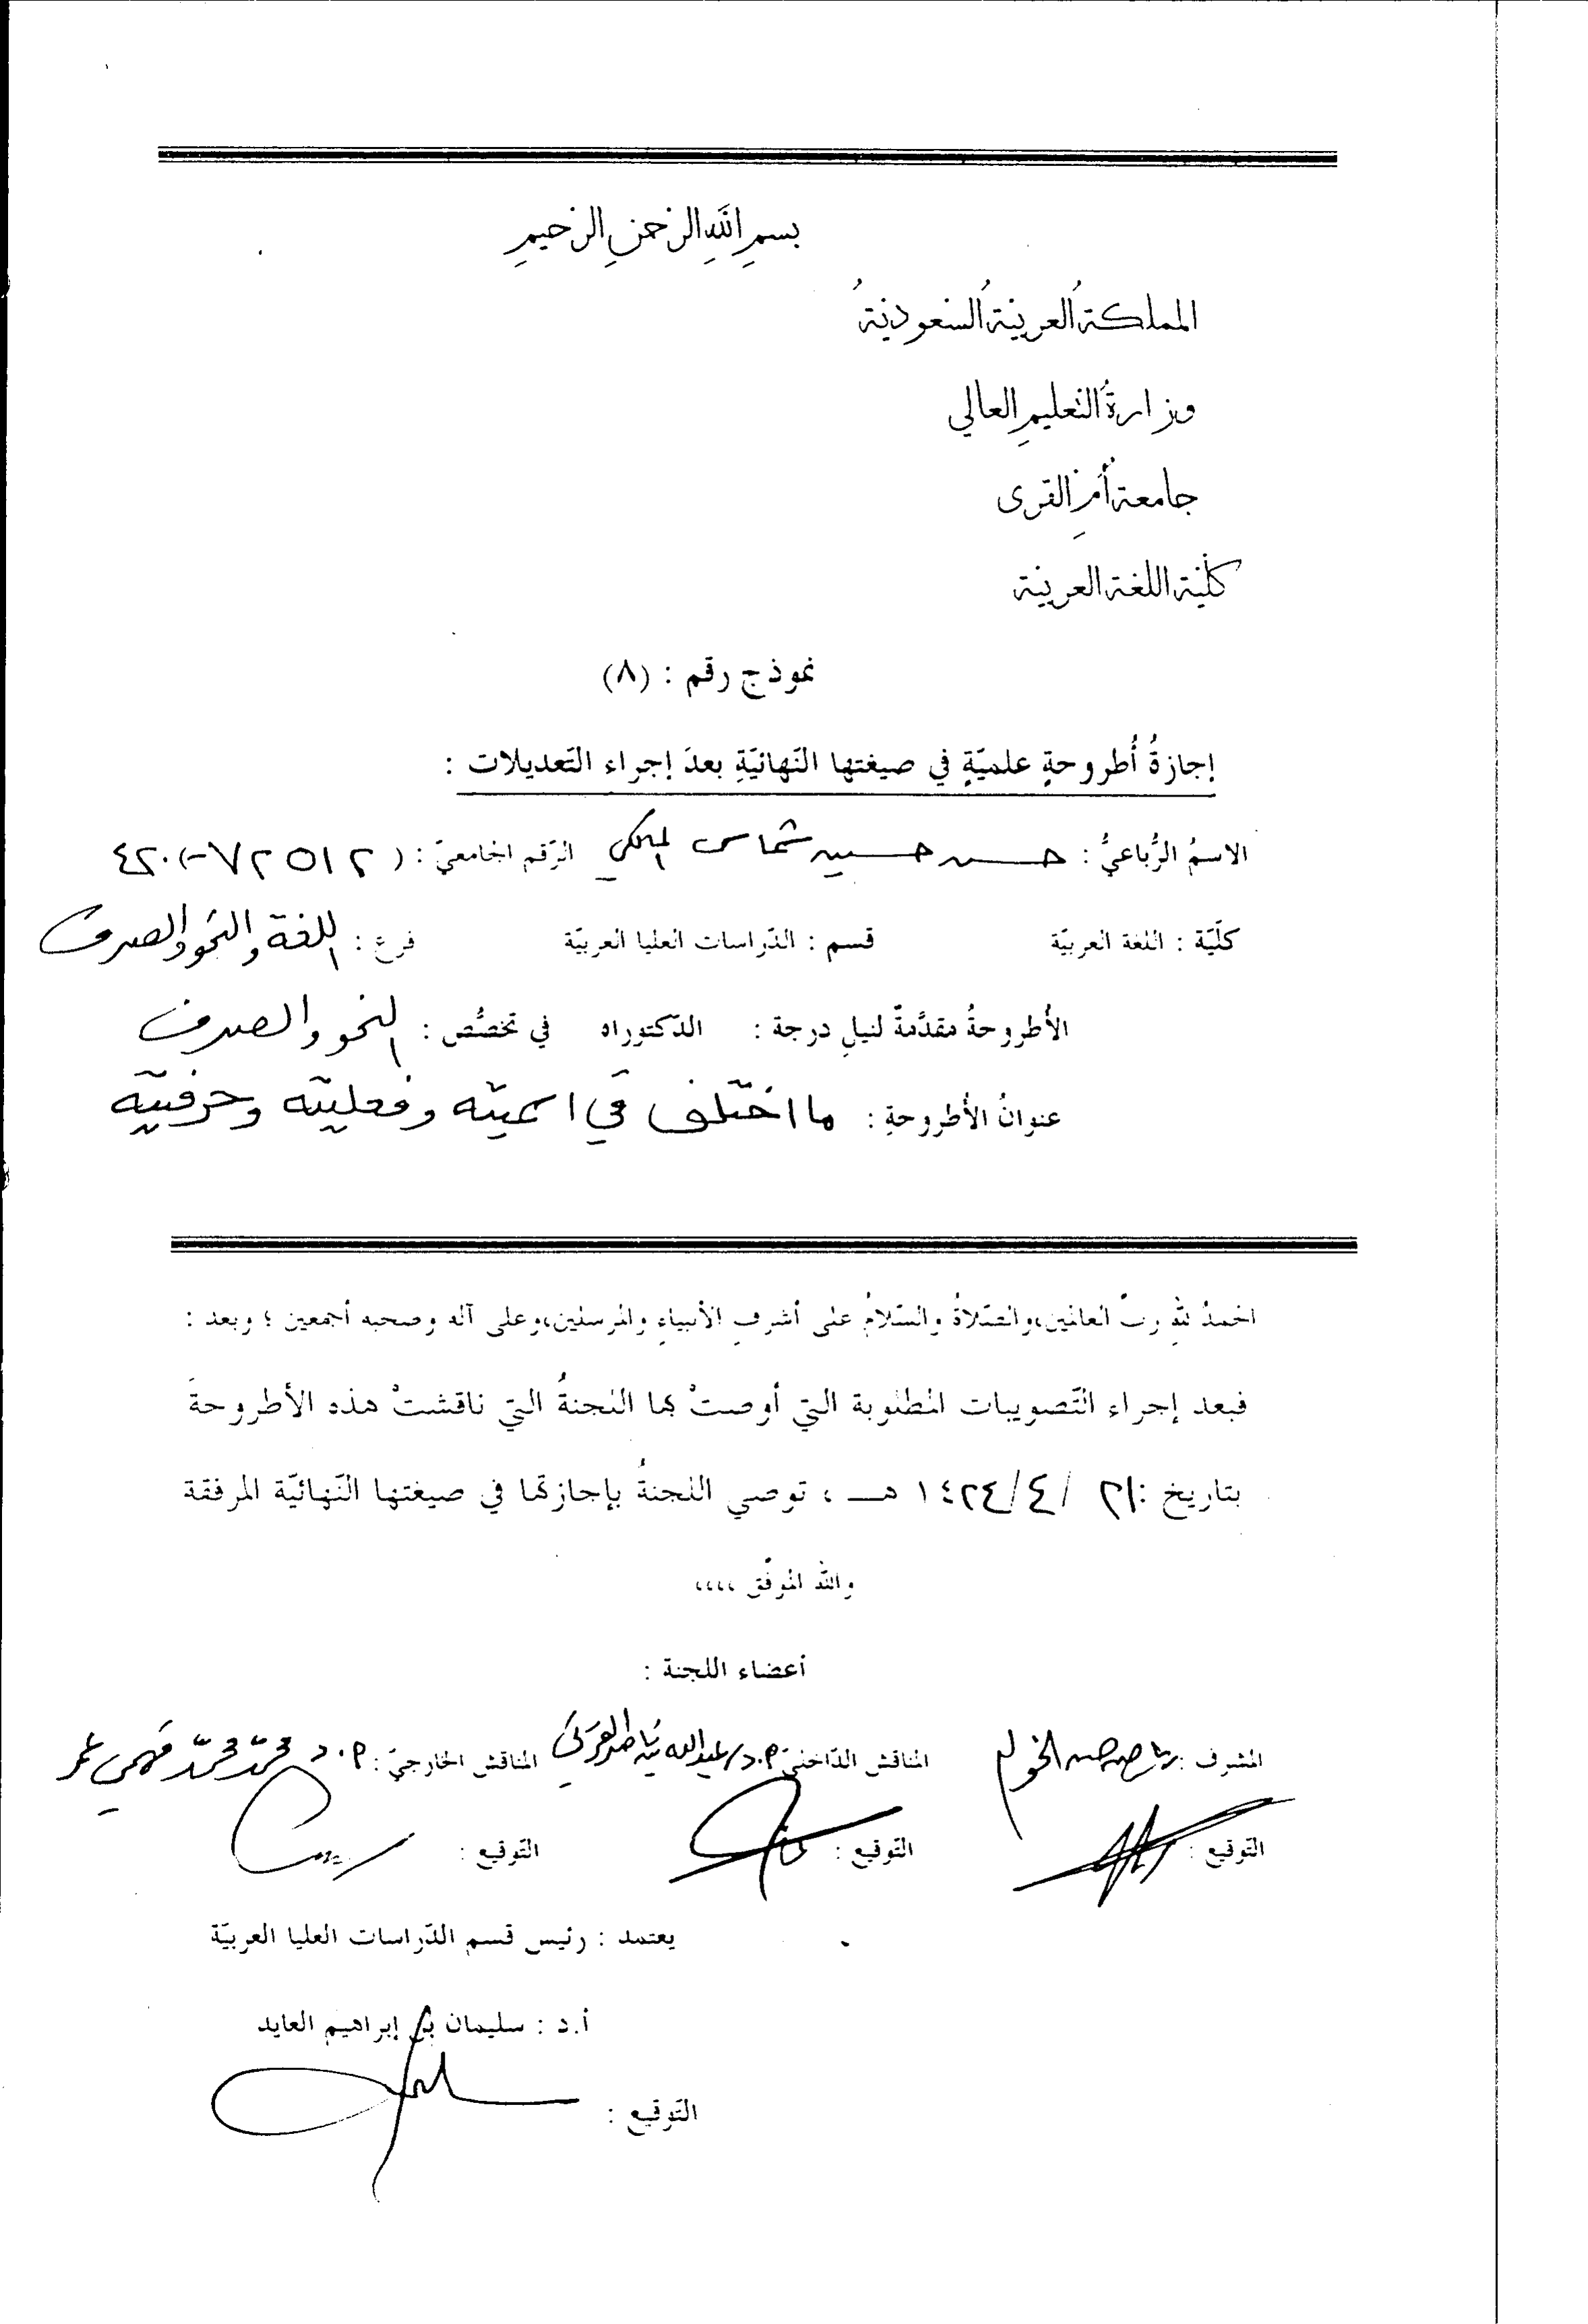 بسمِ اللهِ الرَّحمنِ الرَّحيمِ
المملكةُ العربيَّةُ السَّعوديَّةُ
وزارةُ التَّعليمِ العالي
جامعةُ أمِّ القرى
كلّيّة اللغة العربيّة
نموذج رقم : (٨)
إجازةُ أُطروحةٍ علميّةٍ في صيغتها النّهائيّةِ بعدَ إجراء التّعديلات :
الاسمُ الرُّباعيُّ : حسن حسين شماس المالكي الرّقم الجامعيّ :
كلّيّة : اللغة العربيّة قسم : الدّراسات العليا العربيّة فرع : اللغة والنحو والصرف
الأُطروحةُ مقدَّمةٌ لنيلِ درجة : الدّكتوراه في تخصُّص : النحو والصرف
عنوانُ الأُطروحةِ : ما اختلف في اسميّته وفعليّته وحرفيّته
الحمدُ للهِ ربّ العالمين،والصّلاةُ والسّلامُ على أشرفِ الأنبياءِ والمرسلين،وعلى آله وصحبه أجمعين ؛ وبعد :
فبعد إجراء التّصويبات المطلوبة التي أوصتْ بها اللجنةُ التي ناقشتْ هذه الأطروحةَ
بتاريخ : ٢١ / ٤ / ١٤٢٤ هـ ، توصي اللجنةُ بإجازتها في صيغتها النّهائيّة المرفقة
والله الموفّق ،،،،
أعضاء اللجنة :
المشرف : رياض حسن الخوام المناقش الدّاخليّ : أ.د/عبدالله ناصر القرني المناقش الخارجيّ : أ.د محمّد محمّد فهمي عمر
التّوقيع : التّوقيع : التّوقيع :
يعتمد : رئيس قسم الدّراسات العليا العربيّة
أ.د : سليمان بن إبراهيم العايد
التّوقيع :